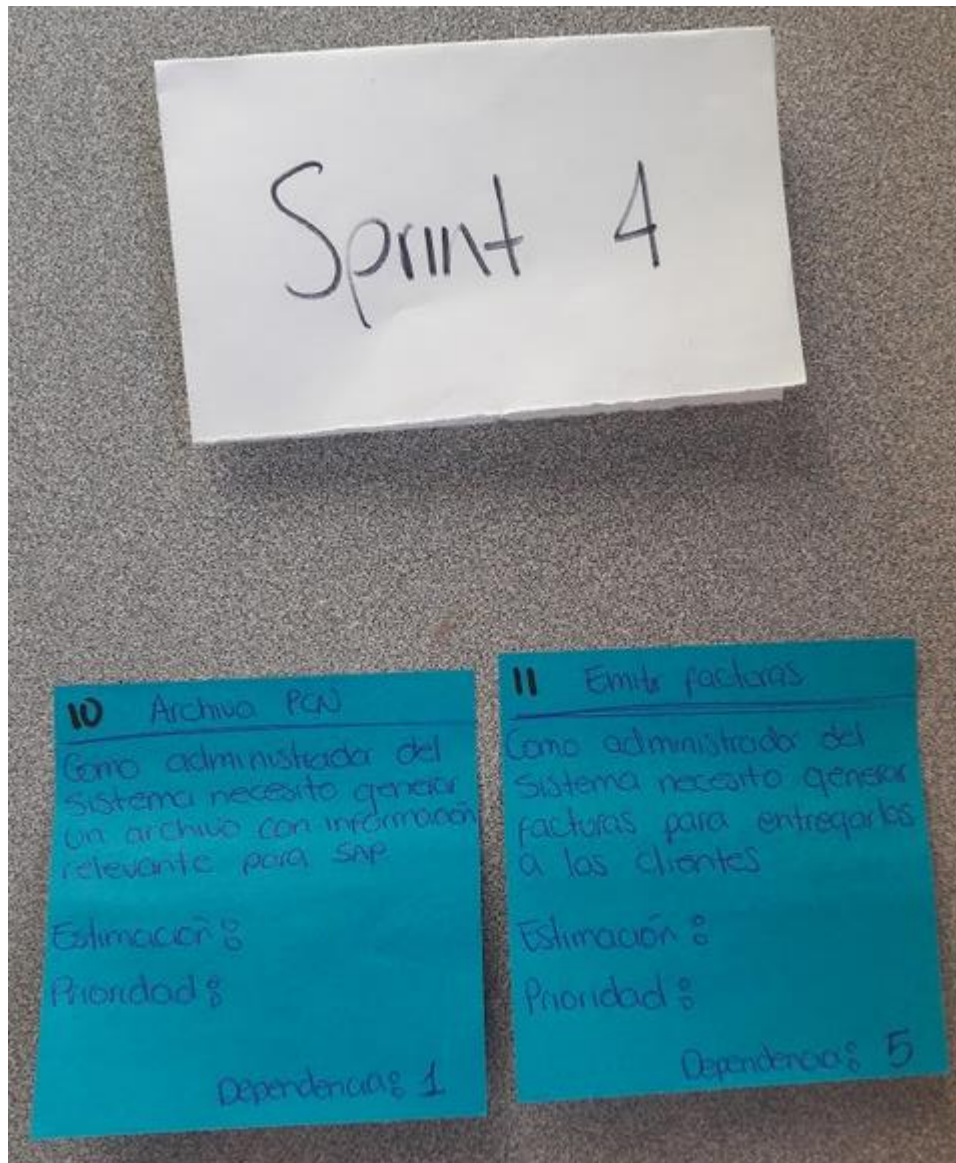 Sprint 4
10 Archivo PCN
Como administrador del
sistema necesito generar
un archivo con información
relevante para SAP
Estimación:
Prioridad:
Dependencia: 1
11 Emitir facturas
Como administrador del
sistema necesito generar
facturas para entregarlas
a los clientes
Estimación:
Prioridad:
Dependencia: 5